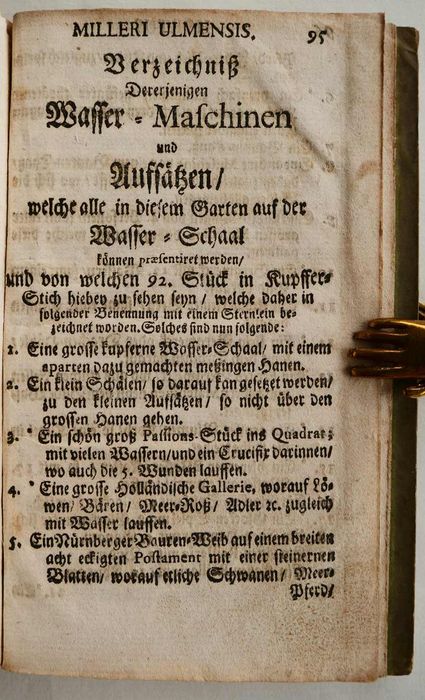 MILLERI ULMENSIS. 95
Verzeichniß
Dererjenigen
Wasser-Maschinen
und
Aufsätzen/
welche alle in diesem Garten auf der
Wasser-Schaal
können præsentiret werden/
und von welchen 92. Stück in Kupffer-
Stich hiebey zu sehen seyn/ welche daher in
folgender Benennung mit einem Sternlein be-
zeichnet worden. Solches sind nun folgende:
1. Eine grosse kupferne Wasser-Schaal/ mit einem
aparten dazu gemachten meßingen Hanen.
2. Ein klein Schälen/ so darauf kan gesetzet werden/
zu den kleinen Aufsätzen/ so nicht über den
grossen Hanen gehen.
3. * Ein schön groß Passions-Stück ins Quadrat;
mit vielen Wassern/ und ein Crucifix darinnen/
wo auch die 5. Wunden lauffen.
4. * Eine grosse Holländische Gallerie, worauf Lö-
wen/ Bären/ Meer-Roß/ Adler ꝛc. zugleich
mit Wasser lauffen.
5. Ein Nürnberger Bauren-Weib auf einem breiten
acht eckigten Postament mit einer steinernen
Blatten/ worauf etliche Schwanen/ Meer-
Pferd/